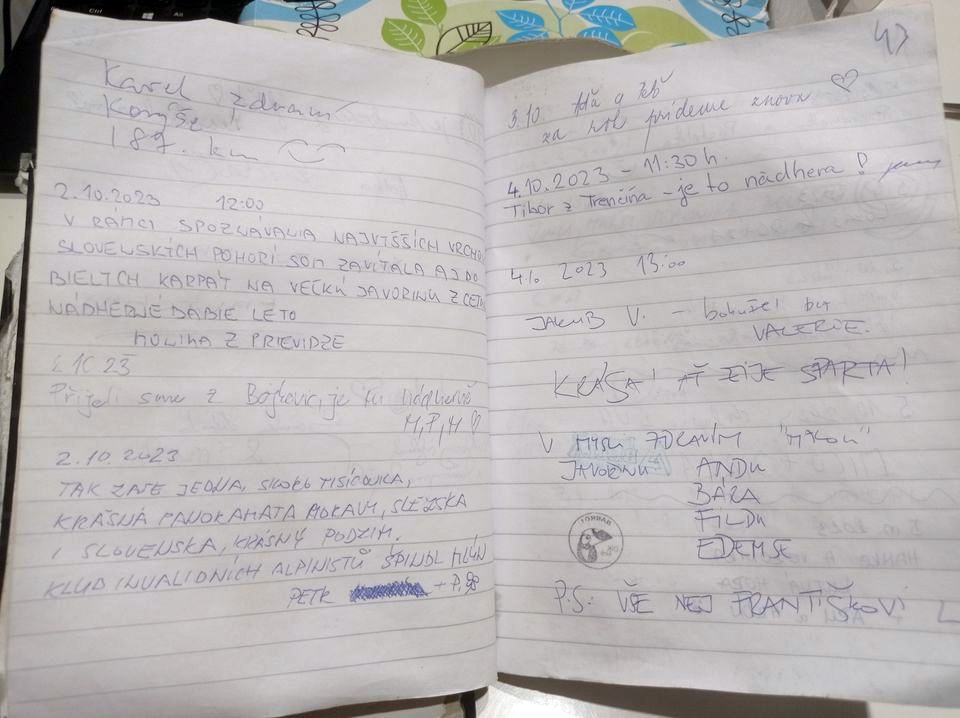 Karel zdraví
187. km
2.10.2023 12:00
V RÁMCI SPOZNÁVANIA NAJVYŠŠÍCH VRCHO
SLOVENSKÝCH POHORÍ SOM ZAVÍTALA AJ DO
BIELYCH KARPÁT NA VEĽKÚ JAVORINU Z CEN
NÁDHERNÉ BABIE LÉTO
MONIKA Z PRIEVIDZE
2.10 23
Přijeli sme z Bojkovic, je tu nádherně
M, P, M ♡
2.10.2023
TAK ZASE JEDNA, SKORO TISÍCOVKA,
KRÁSNÁ PANORAMATA MORAVY, SLEZSKA
I SLOVENSKA, KRÁSNÝ PODZIM.
KLUB INVALIDNÍCH ALPINISTŮ ŠPINDL MLÝN
PETR + P,
47
3.10.
za rok prídeme znovu ♡
4.10.2023 - 11:30 h.
Tibor z Trenčína - je to nádhera!
4.10 2023 13:00
JAKUB V. - bohužel byt
VALERDE.
KRÁSA! AŤ ŽIJE SPARTA!
V MYSLI ZDRAVÍM
JAVORINU ANDU
BÁRA
FILDU
EDEMSE
P.S: VŠE NEJ FRANTIŠKOVI